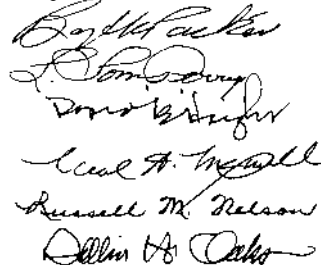 Boyd K Packer
L. Tom Perry
David B. Haight
Neal A. Maxwell
Russell M. Nelson
Dallin H. Oaks